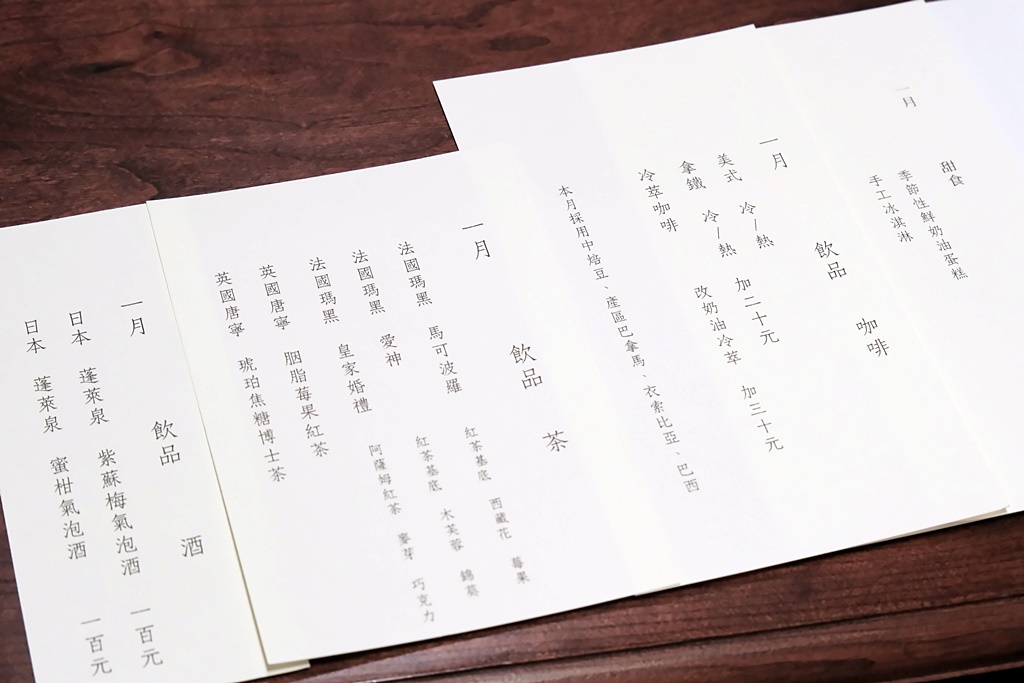 一月
甜食
季節性鮮奶油蛋糕
手工冰淇淋
一月
飲品 咖啡
美式 冷/熱 加二十元
拿鐵 冷/熱 改奶油冷萃 加三十元
冷萃咖啡
本月採用中焙豆、產區巴拿馬、衣索比亞、巴西
一月
飲品 茶
法國瑪黑 馬可波羅 紅茶基底 西藏花 莓果
法國瑪黑 愛神 紅茶基底 木芙蓉 錦葵
法國瑪黑 皇家婚禮 阿薩姆紅茶 麥芽 巧克力
英國唐寧 胭脂莓果紅茶
英國唐寧 琥珀焦糖博士茶
一月
飲品 酒
日本 蓬萊泉 紫蘇梅氣泡酒 一百元
日本 蓬萊泉 蜜柑氣泡酒 一百元